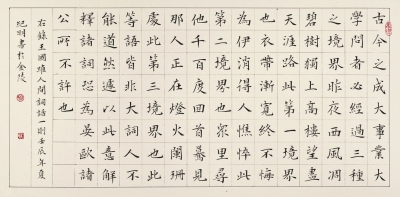 古今之成大事業大
學問者必經過三種
之境界昨夜西風凋
碧樹獨上高樓望盡
天涯路此第一境界
也衣帶漸寬終不悔
為伊消得人憔悴此
第二境界也眾里尋
他千百度回首驀見
那人正在燈火闌珊
處此第三境界也此
等語皆非大詞人不
能道然遽以此意解
釋諸詞恐為晏歐諸
公所不許也
右錄王國維人間詞話一則壬辰年夏
明書於金陵